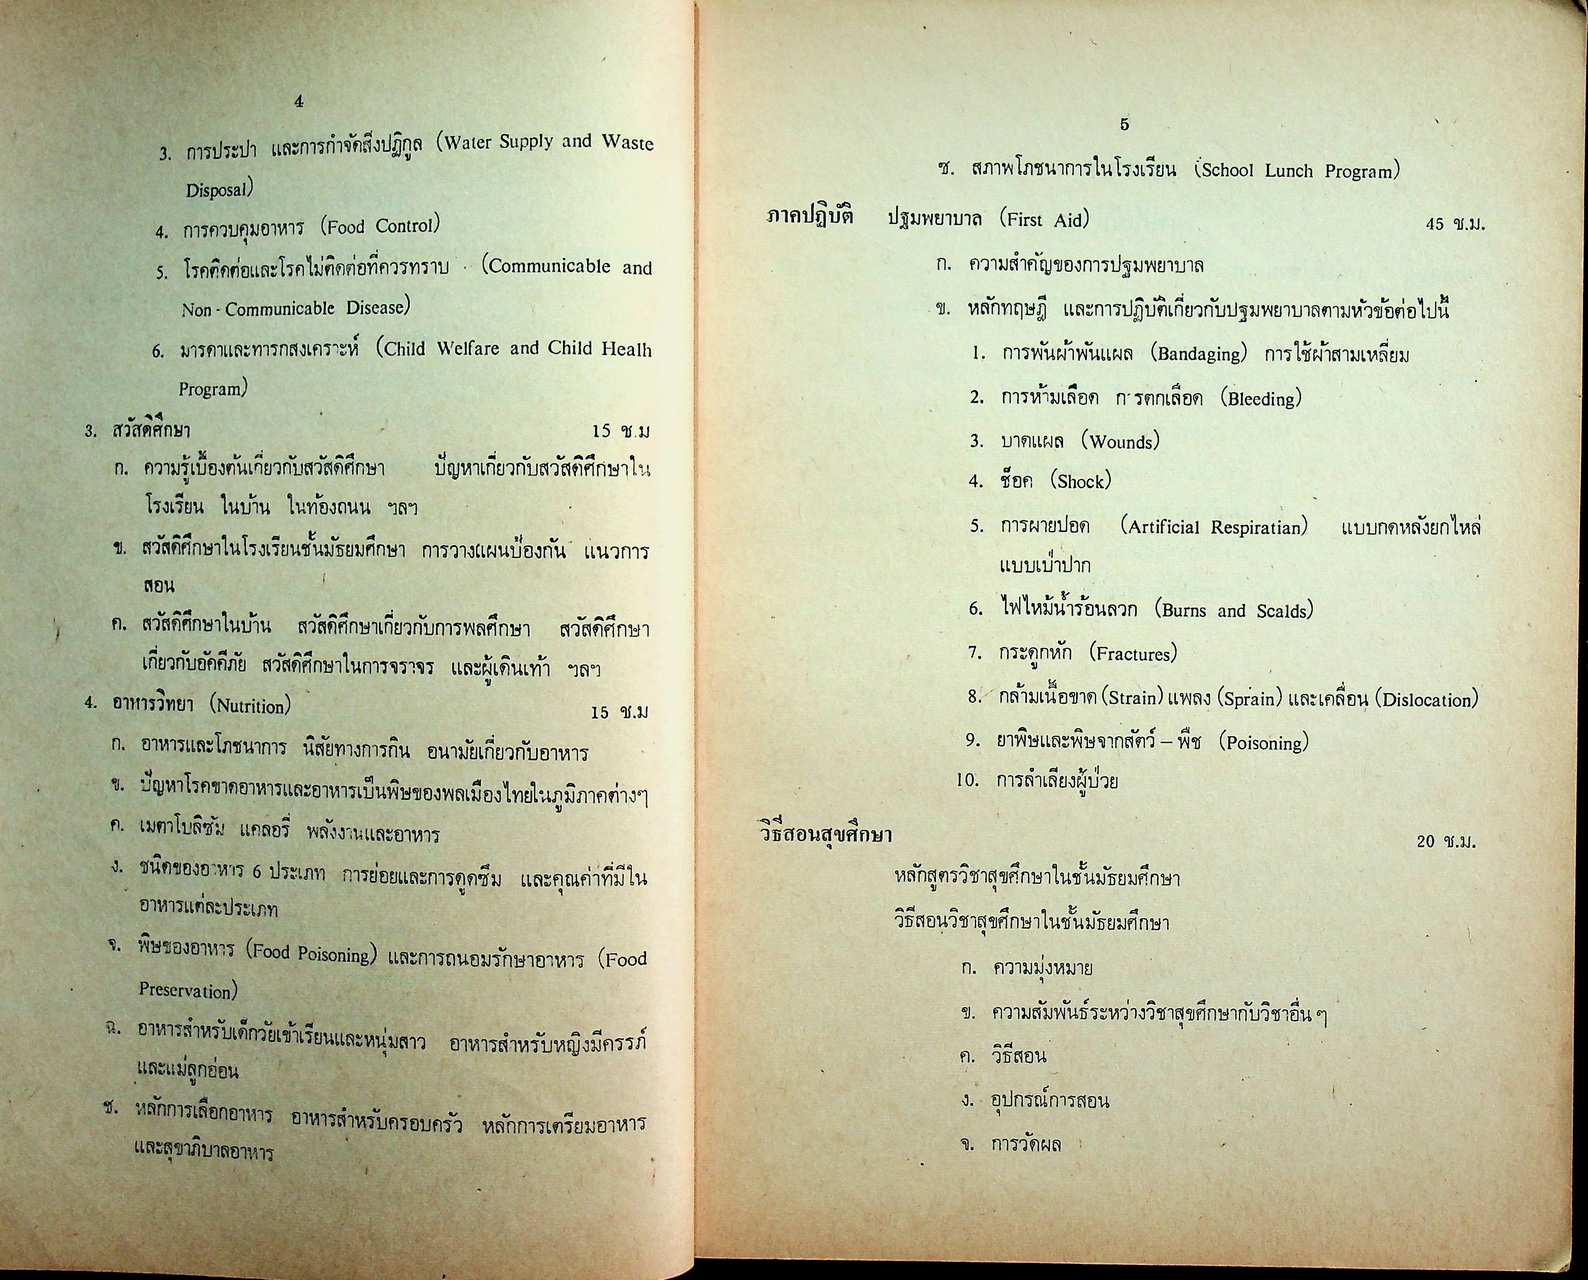 4
3. การประปา และการกำจัดสิ่งปฏิกูล (Water Supply and Waste
Disposal)
4. การควบคุมอาหาร (Food Control)
5. โรคติดต่อและโรคไม่ติดต่อที่ควรทราบ (Communicable and
Non - Communicable Disease)
6. มารดาและทารกสงเคราะห์ (Child Welfare and Child Healh
Program)
3. สวัสดิศึกษา 15 ช.ม
ก. ความรู้เบื้องต้นเกี่ยวกับสวัสดิศึกษา ปัญหาเกี่ยวกับสวัสดิศึกษาใน
โรงเรียน ในบ้าน ในท้องถนน ฯลฯ
ข. สวัสดิศึกษาในโรงเรียนชั้นมัธยมศึกษา การวางแผนป้องกัน แนวการ
สอน
ค. สวัสดิศึกษาในบ้าน สวัสดิศึกษาเกี่ยวกับการพลศึกษา สวัสดิศึกษา
เกี่ยวกับอัคคีภัย สวัสดิศึกษาในการจราจร และผู้เดินเท้า ฯลฯ
4. อาหารวิทยา (Nutrition) 15 ช.ม
ก. อาหารและโภชนาการ นิสัยทางการกิน อนามัยเกี่ยวกับอาหาร
ข. ปัญหาโรคขาดอาหารและอาหารเป็นพิษของพลเมืองไทยในภูมิภาคต่างๆ
ค. เมตาโบลิซัม แคลอรี่ พลังงานและอาหาร
ง. ชนิดของอาหาร 6 ประเภท การย่อยและการดูดซึม และคุณค่าที่มีใน
อาหารแต่ละประเภท
จ. พิษของอาหาร (Food Poisoning) และการถนอมรักษาอาหาร (Food
Preservation)
ฉ. อาหารสำหรับเด็กวัยเข้าเรียนและหนุ่มสาว อาหารสำหรับหญิงมีครรภ์
และแม่ลูกอ่อน
ช. หลักการเลือกอาหาร อาหารสำหรับครอบครัว หลักการเตรียมอาหาร
และสุขาภิบาลอาหาร
5
ซ. สภาพโภชนาการในโรงเรียน (School Lunch Program)
ภาคปฏิบัติ ปฐมพยาบาล (First Aid) 45 ช.ม.
ก. ความสำคัญของการปฐมพยาบาล
ข. หลักทฤษฎี และการปฏิบัติเกี่ยวกับปฐมพยาบาลตามหัวข้อต่อไปนี้
1. การพันผ้าพันแผล (Bandaging) การใช้ผ้าสามเหลี่ยม
2. การห้ามเลือด การตกเลือด (Bleeding)
3. บาดแผล (Wounds)
4. ช็อค (Shock)
5. การผายปอด (Artificial Respiratian) แบบกดหลังยกไหล่
แบบเป่าปาก
6. ไฟไหม้น้ำร้อนลวก (Burns and Scalds)
7. กระดูกหัก (Fractures)
8. กล้ามเนื้อขาด (Strain) แพลง (Sprain) และเคลื่อน (Dislocation)
9. ยาพิษและพิษจากสัตว์ – พืช (Poisoning)
10. การลำเลียงผู้ป่วย
วิธีสอนสุขศึกษา 20 ช.ม.
หลักสูตรวิชาสุขศึกษาในชั้นมัธยมศึกษา
วิธีสอนวิชาสุขศึกษาในชั้นมัธยมศึกษา
ก. ความมุ่งหมาย
ข. ความสัมพันธ์ระหว่างวิชาสุขศึกษากับวิชาอื่นๆ
ค. วิธีสอน
ง. อุปกรณ์การสอน
จ. การวัดผล